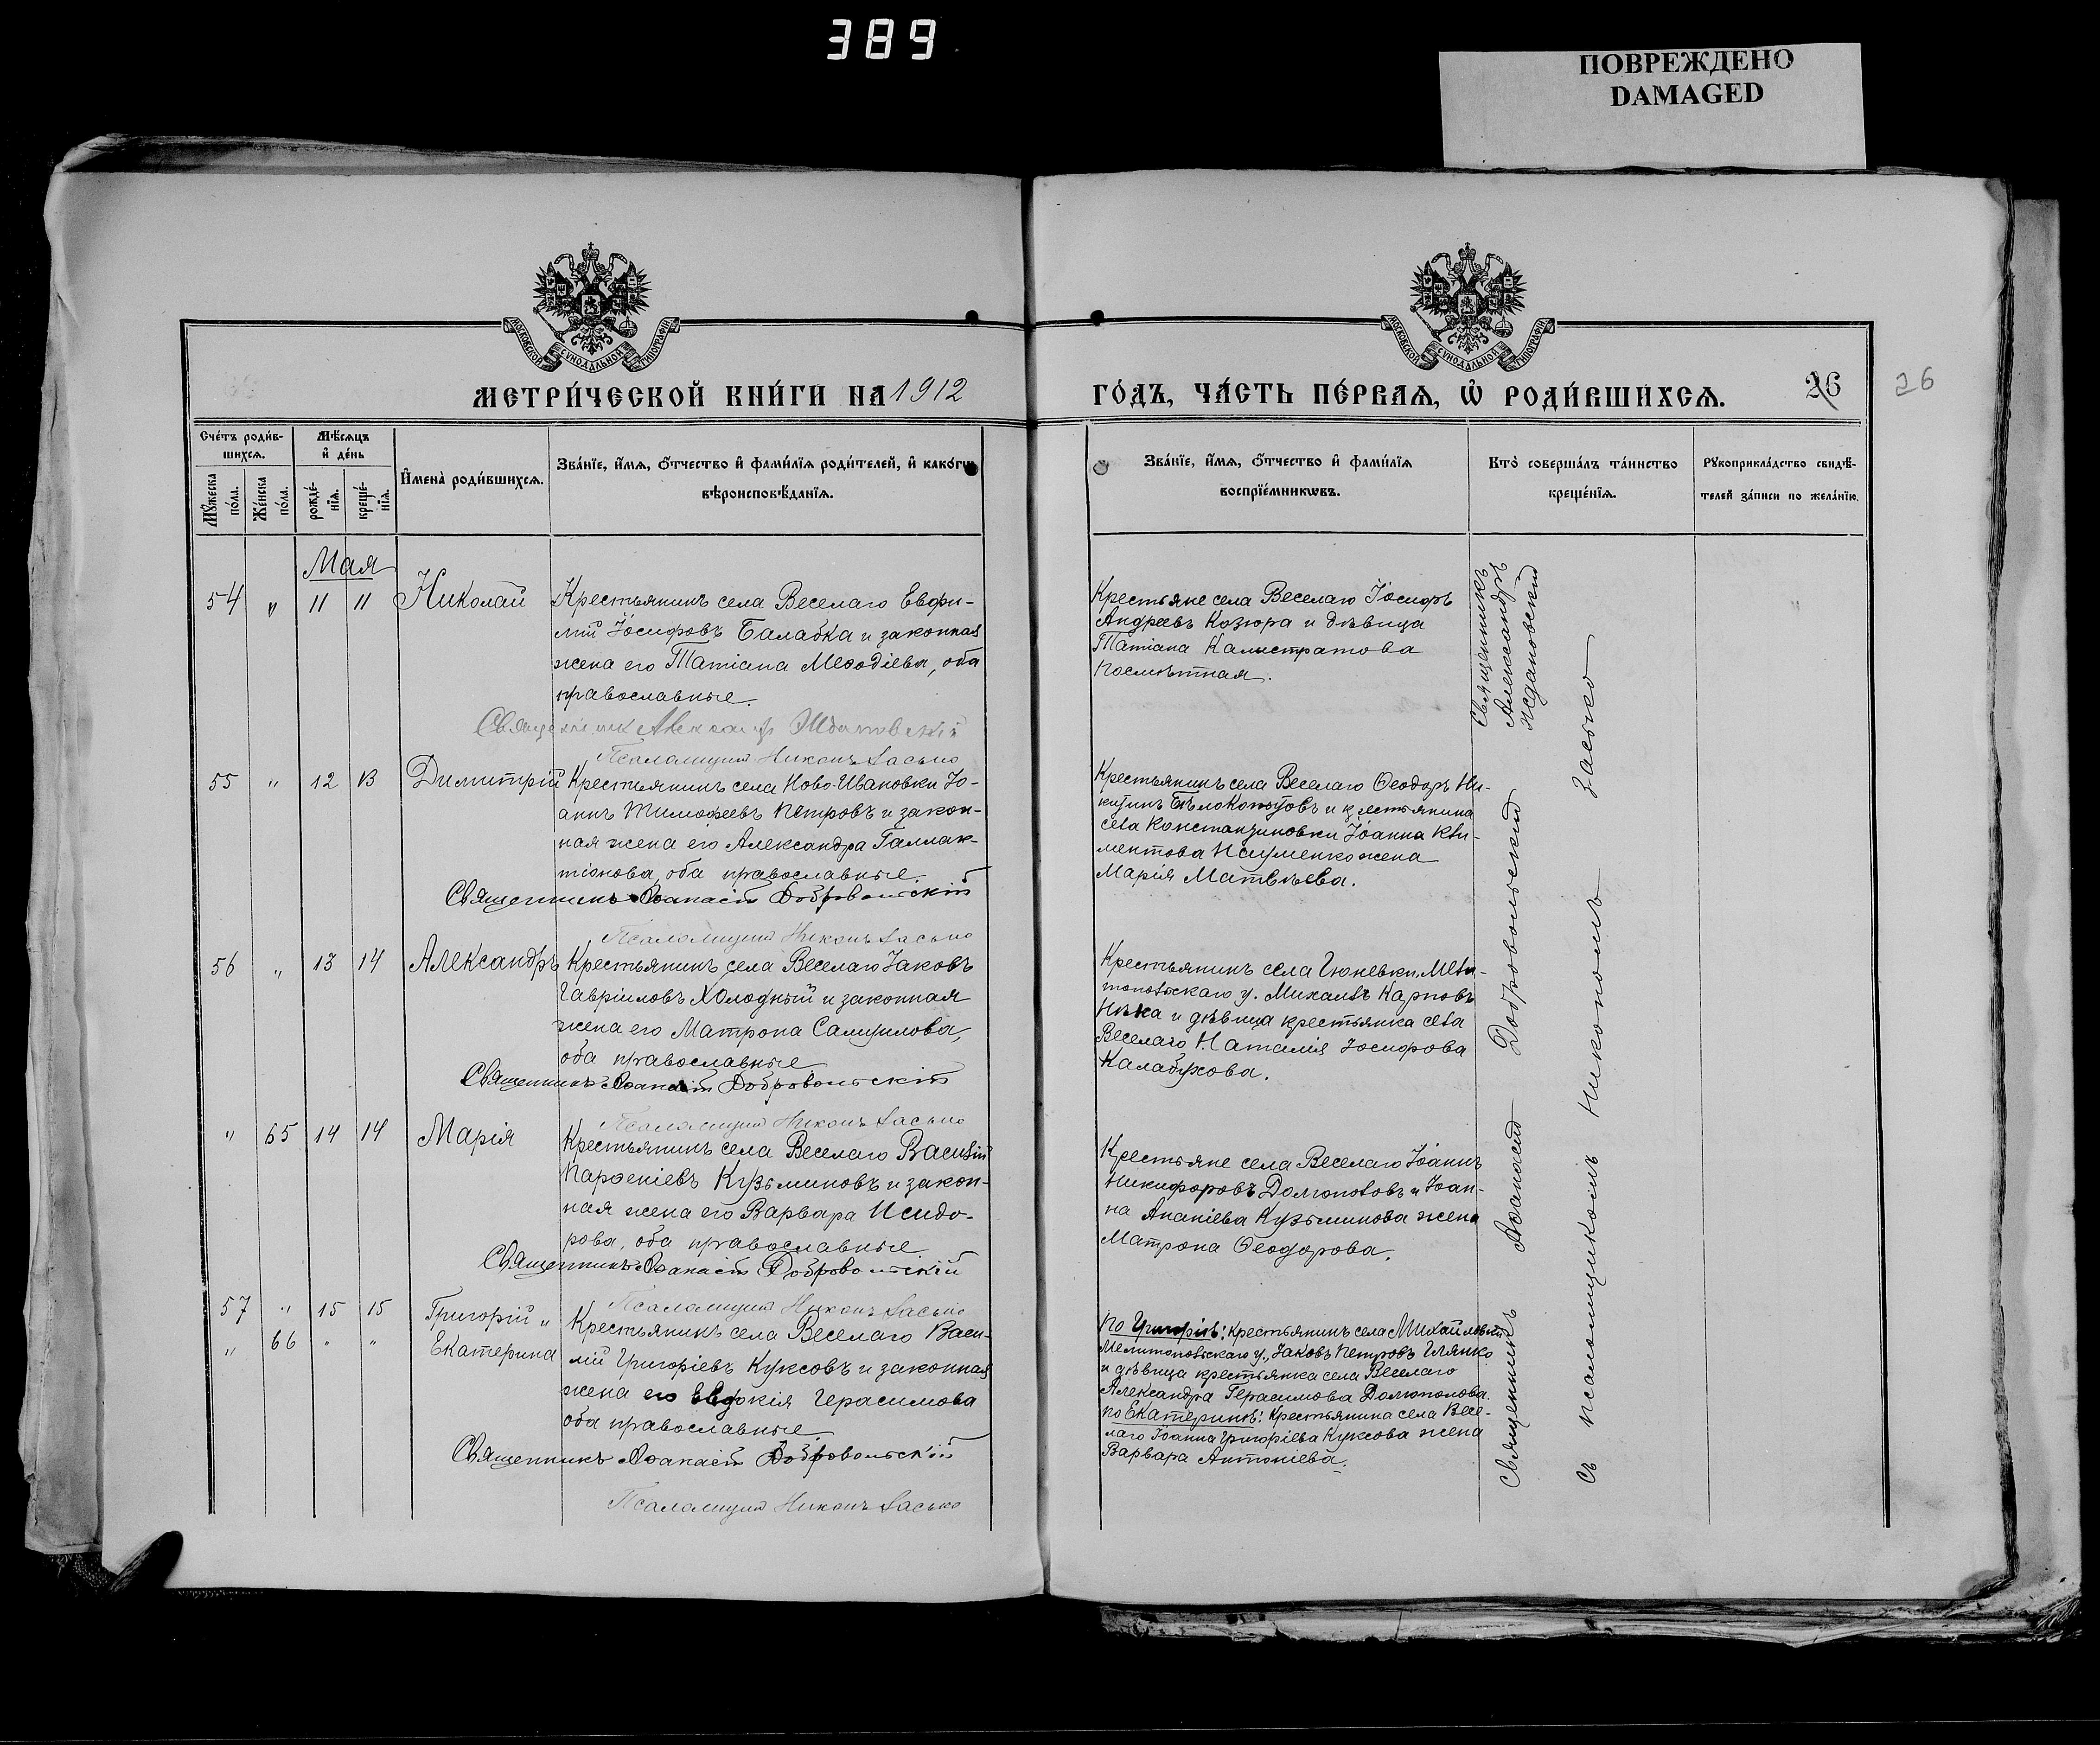 389
ПОВРЕЖДЕНО
DAMAGED
МОСКОВСКОЙ СѴНОДАЛЬНОЙ ТИПОГРАФІИ
МОСКОВСКОЙ СѴНОДАЛЬНОЙ ТИПОГРАФІИ
МЕТРИ́ЧЕСКОЙ КНИ́ГИ НА 1912
ГО́ДЪ, ЧА́СТЬ ПЕ́РВАѦ, Ѡ҆ РОДИ́ВШИХСѦ.
26
26
Сче́тъ роди́в-
шихсѧ.
Мѣ́сѧцъ
и҆ де́нь
Мꙋ́жеска
по́ла.
Же́нска
по́ла.
рожде́-
нїѧ.
креще́-
нїѧ.
И҆мена̀ роди́вшихсѧ.
Зва́нїе, и҆́мѧ, ѻ҆́тчество и҆ фами́лїѧ роди́телей, и҆ како́гѡ
вѣроисповѣ́данїѧ.
Зва́нїе, и҆́мѧ, ѻ҆́тчество и҆ фами́лїѧ
воспрїе́мникѡвъ.
Кто̀ соверша́лъ та́инство
креще́нїѧ.
Рꙋкоприкла́дство свидѣ́-
телей за́писи по жела́нїю.
Мая
54 " 11 11 Николай
Крестьянинъ села Веселаго Евфи-
мій Іосифовъ Балабка и законная
жена его Татіана Меѳодіева, оба
православные.
Священник Александр Ждановский
Псаломщик Никонъ Засько
Крестьяне села Веселаго Іосифъ
Андреевъ Козюра и дѣвица
Татіана Калистратова
Посмѣтная.
55 " 12 13 Димитрій
Крестьянинъ села Ново-Ивановки Іо-
аннъ Тимоѳеевъ Петровъ и закон-
ная жена его Александра Галлак-
тіонова, оба православные
Священникъ Аѳанасій Добровольскій
Псаломщик Никонъ Засько
Крестьянинъ села Веселаго Ѳеодоръ Ни-
китинъ Бѣлокопытовъ и крестьянина
села Константиновки Іоанна Кли-
ментова Науменко жена
Марія Матвѣева.
56 " 13 14 Александръ
Крестьянинъ села Веселаго Іаковъ
Гавріиловъ Холодный и законная
жена его Матрона Самуилова,
оба православные
Священникъ Аѳанасій Добровольскій
Псаломщик Никонъ Засько
Крестьянинъ села Гюневки, Мели-
топольскаго у. Михаилъ Карповъ
и дѣвица крестьянка села
Веселаго Наталія Іосифова
Калабухова.
" 65 14 14 Марія
Крестьянинъ села Веселаго Василій
Парѳеніевъ Кузьминовъ и закон-
ная жена его Варвара Исидо-
рова, оба православные
Священникъ Аѳанасій Добровольскій
Псаломщик Никонъ Засько
Крестьяне села Веселаго Іоаннъ
Никифоровъ Долгополовъ и Іоан-
на Ананіева Кузьминова жена
Матрона Ѳеодорова.
57 " 15 15 Григорій "
" 66 " " Екатерина
Крестьянинъ села Веселаго Васи-
лій Григоріевъ Куксовъ и законная
жена его Евдокія Герасимова
оба православные
Священникъ Аѳанасій Добровольскій
Псаломщик Никонъ Засько
По Григоріѣ: крестьянинъ села Михайловки
Мелитопольскаго у., Іаковъ Петровъ
и дѣвица крестьянка села Веселаго
Александра Герасимова Долгополова.
по Екатеринѣ: Крестьянина села Весе-
лаго Іоанна Григоріева Куксова жена
Варвара Антоніева.
Священникъ
Александръ
Ждановскій
Священникъ Аѳанасій Добровольскій
съ псаломщикомъ Никономъ Засько